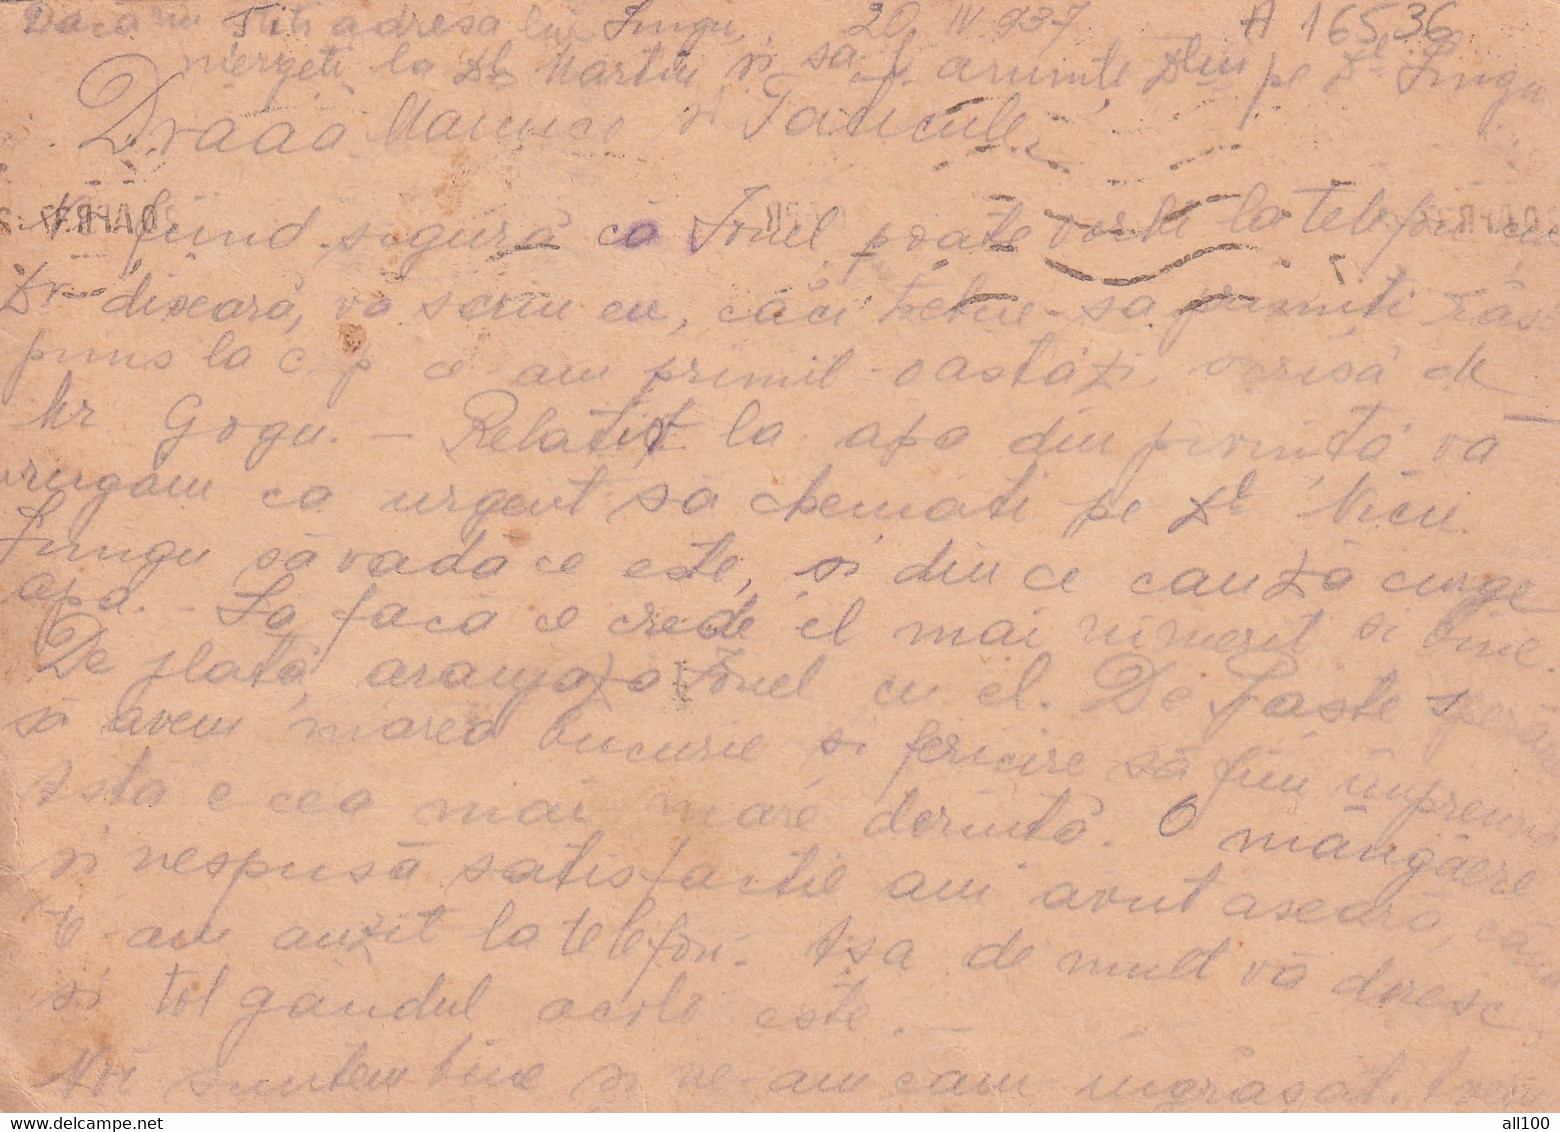 Dacă nu știți adresa lui Lungu, 20 IV 937 A 16536
mergeți la Dl Martin și să-l anunțe Dlui pe Dl Lungu
Dragă Mămuco și Tăticule,
Ne fiind sigură că Ionel poate vorbi la telefon cu
Dv. diseară, vă scriu eu, căci trebue să primiți răs-
puns la c. p. ce am primit astăzi, scrisă de
Nr Gogu. — Relativ la apa din pivniță vă
rugăm ca urgent să chemați pe Dl Nicu
Lungu să vadă ce este, și din ce cauză curge
apa. - Să facă ce crede el mai nimerit și bine.
De plată, aranjază Ionel cu el. De Paște sperăm
să avem marea bucurie și fericire să fim împreună
Asta e cea mai mare dorință. O mângâere
și nespusă satisfacție am avut aseară, când
te-am auzit la telefon. Așa de mult vă doresc
și tot gândul acolo este. —
Noi suntem bine și ne-am cam îngrășat.